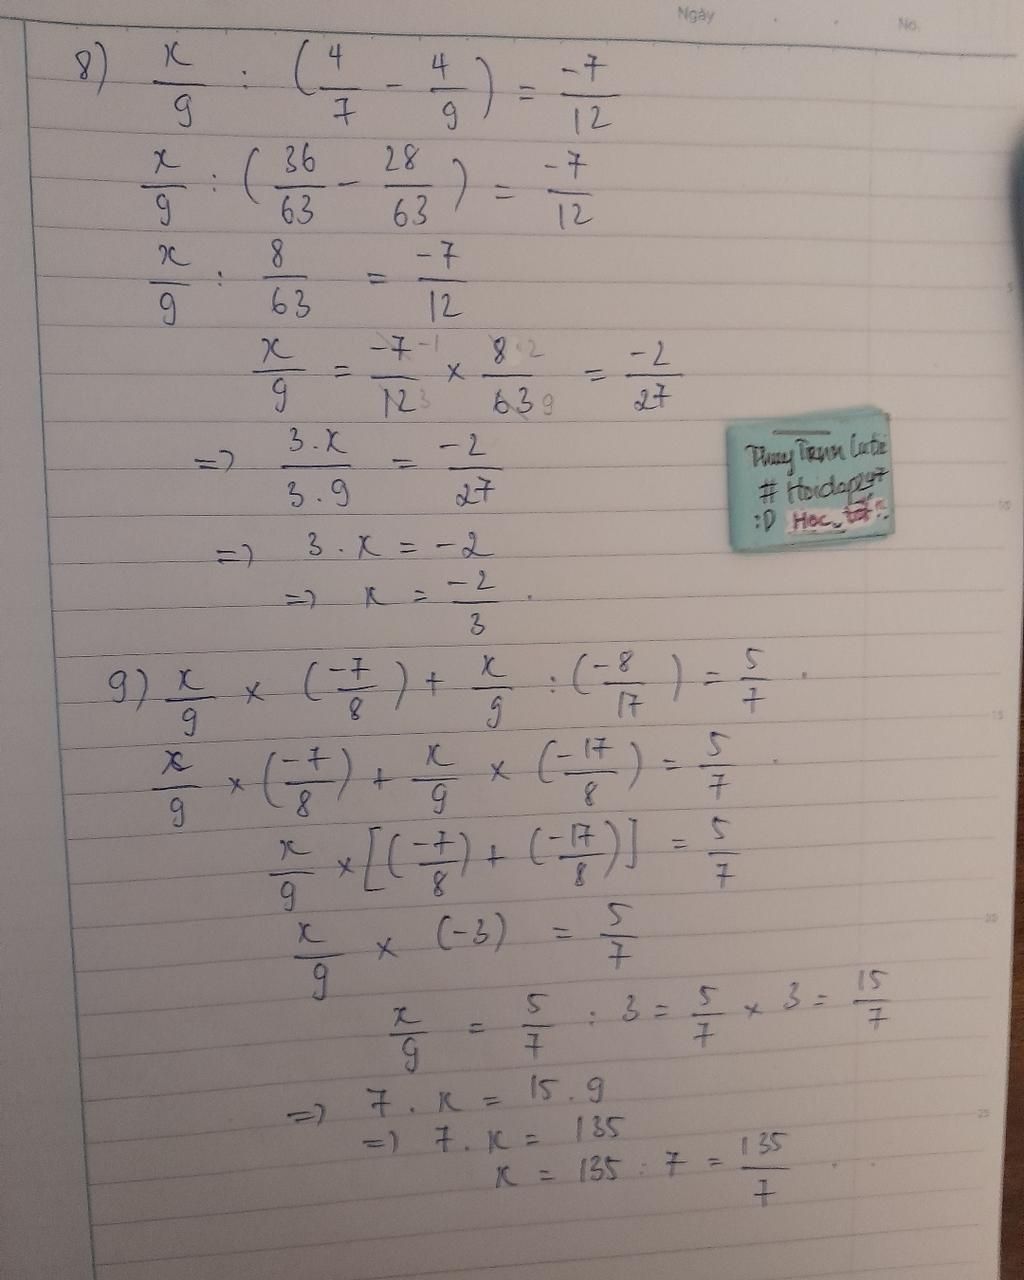 Ngày No.
8) x/9 : (4/7 - 4/9) = -7/12
x/9 : (36/63 - 28/63) = -7/12
x/9 : 8/63 = -7/12
x/9 = -7 -1/12 3 × 8 2/63 9 = -2/27
=> 3.x/3.9 = -2/27
=> 3.x = -2
=> x = -2/3.
Thuy Tran
# Hoidap247
:D Học tốt!
9) x/9 × (-7/8) + x/9 : (-8/17) = 5/7.
x/9 × (-7/8) + x/9 × (-17/8) = 5/7.
x/9 × [(-7/8) + (-17/8)] = 5/7
x/9 × (-3) = 5/7
x/9 = 5/7 : 3 = 5/7 × 3 = 15/7
=> 7.x = 15.9
=> 7.x = 135
x = 135 : 7 = 135/7
5
10
15
20
25